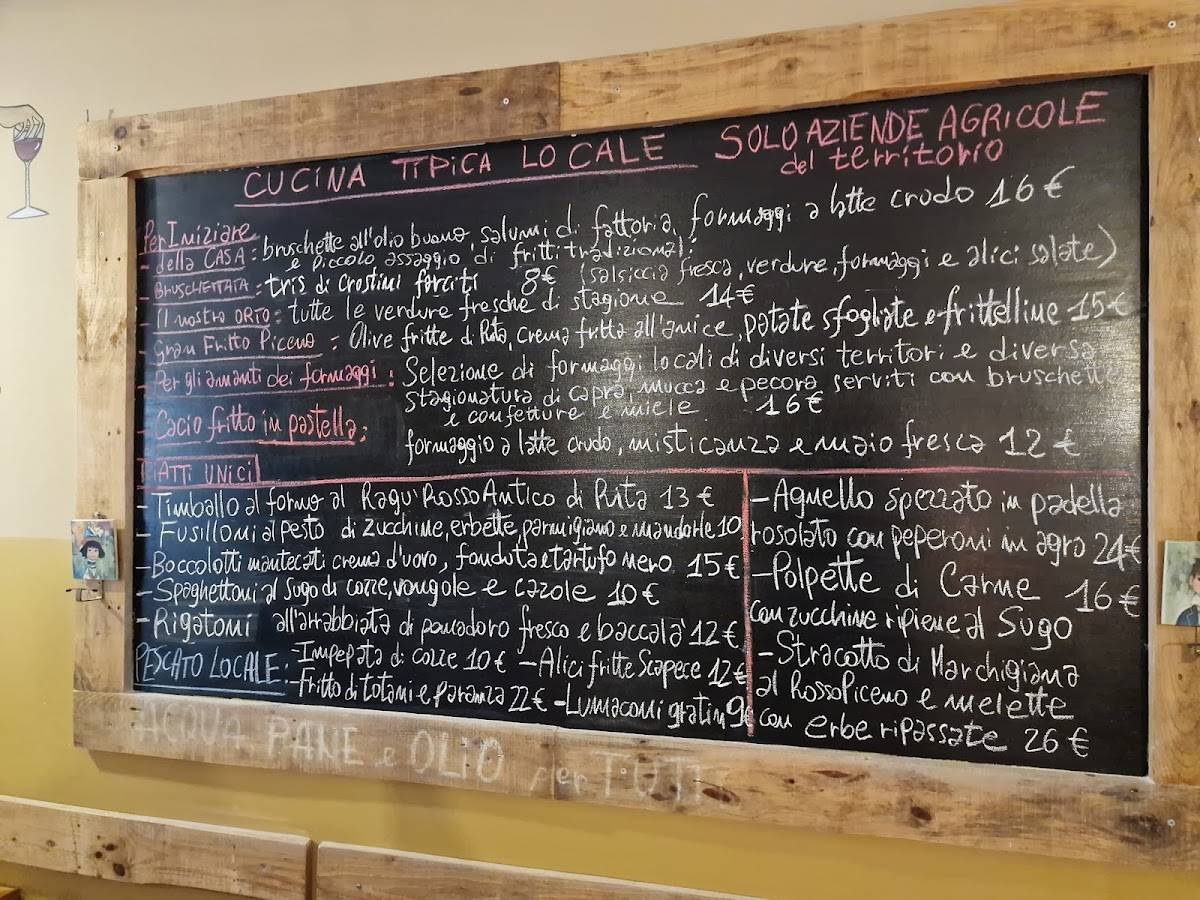 CUCINA TIPICA LOCALE
SOLO AZIENDE AGRICOLE
del territorio
Per Iniziare
- della CASA: bruschette all'olio buono, salumi di fattoria, formaggi a latte crudo 16€
e piccolo assaggio di fritti tradizionali
- BRUSCHETTATA: tris di Crostini farciti 8€ (salsiccia fresca, verdure, formaggi e alici salate)
- Il nostro ORTO: tutte le verdure fresche di stagione 14€
- Gran Fritto Piceno: Olive fritte di Rita, crema fritta all'anice, patate sfogliate e frittelline 15€
- Per gli amanti dei formaggi: Selezione di formaggi locali di diversi territori e diversa
stagionatura, di capra, mucca e pecora serviti con bruschette
e confetture e miele 16€
- Cacio fritto in pastella:
formaggio a latte crudo, misticanza e maio fresca 12€
PIATTI UNICI
- Timballo al forno al Ragu' Rosso Antico di Rita 13€
- Fusilloni al pesto di zucchine, erbette, parmigiano e mandorle 10
- Boccolotti mantecati crema d'uovo, fonduta e tartufo nero 15€
- Spaghettoni al Sugo di cozze, vongole e cazole 10€
- Rigatoni all'arrabbiata di pomodoro fresco e baccalà 12€
PESCATO LOCALE: - Impepata di cozze 10€ - Alici fritte Scapece 12€
- Fritto di totani e paranza 22€ - Lumaconi gratin 9€
- Agnello spezzato in padella
rosolato con peperoni in agro 24€
- Polpette di Carne 16€
con zucchine ripiene al Sugo
- Stracotto di Marchigiana
al Rosso Piceno e melette
con erbe ripassate 26€
ACQUA, PANE e OLIO per TUTTI